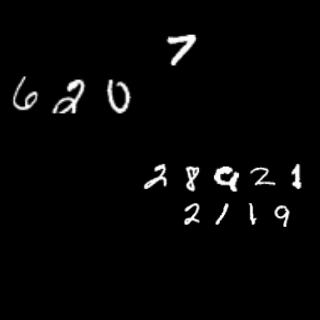 7
6 2 0
2 8 9 2 1
2 1 1 9